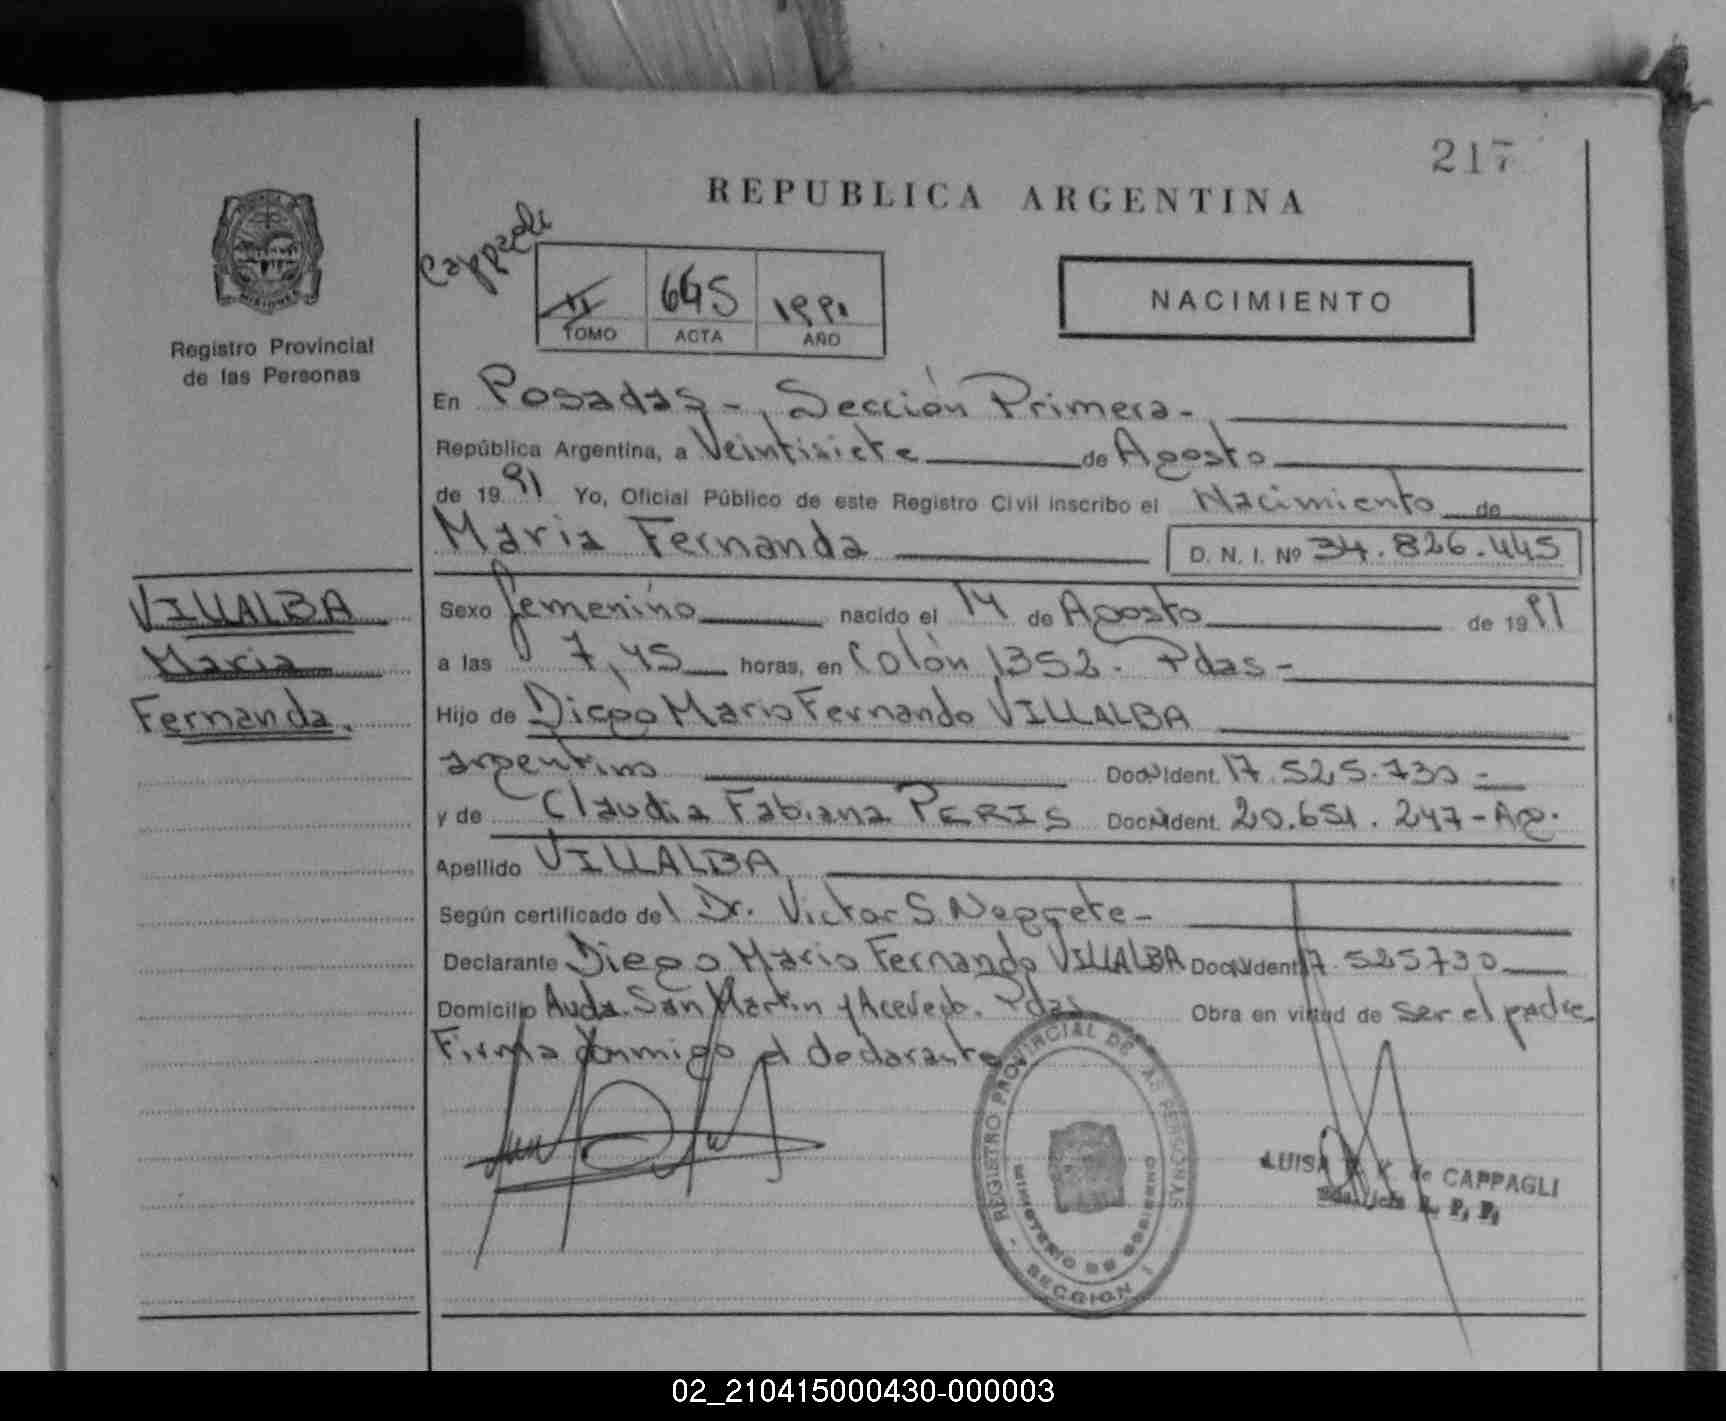 217
REPUBLICA ARGENTINA
Cappagli
II 645 1991
TOMO ACTA AÑO
NACIMIENTO
Registro Provincial
de las Personas
En Posadas -, Sección Primera -
República Argentina, a Veintisiete de Agosto
de 1991 Yo, Oficial Público de este Registro Civil inscribo el Nacimiento de
Maria Fernanda D. N. I. Nº 34.826.445
VILLALBA
Maria
Fernanda.
Sexo femenino nacido el 14 de Agosto de 1991
a las 7,45 horas, en Colón 1352. Pdas -
Hijo de Diego Mario Fernando VILLALBA
argentino Doc. Ident. 17.525.730 -
y de Claudia Fabiana PERIS Doc. Ident. 20.651.247 - Ag.
Apellido VILLALBA
Según certificado del Dr. Victor S. Negrete -
Declarante Diego Mario Fernando VILLALBA Doc. Ident. 17.525730
Domicilio Avda. San Martin y Acevedo. Pdas Obra en virtud de ser el padre
Firma conmigo el declarante
REGISTRO PROVINCIAL DE LAS PERSONAS
MINISTERIO DE GOBIERNO
SECCION I
LUISA K. de CAPPAGLI
R. P. P.
02_210415000430-000003